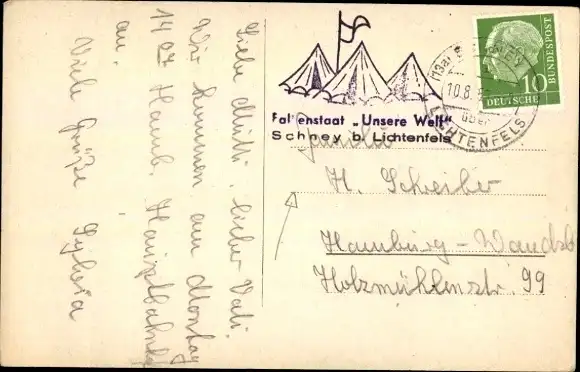 Liebe Mutti, lieber Vati.
Wir kommen am Montag
14 07 Hamb. Hauptbahnhof
an.
Viele Grüße Sylvia
Falkenstaat „Unsere Welt“
Schney b. Lichtenfels
(13a)
10.8.
über
LICHTENFELS
10
DEUTSCHE
BUNDESPOST
Familie
H. Schreiber
Hamburg-Wandsb
Holzmühlenstr. 99